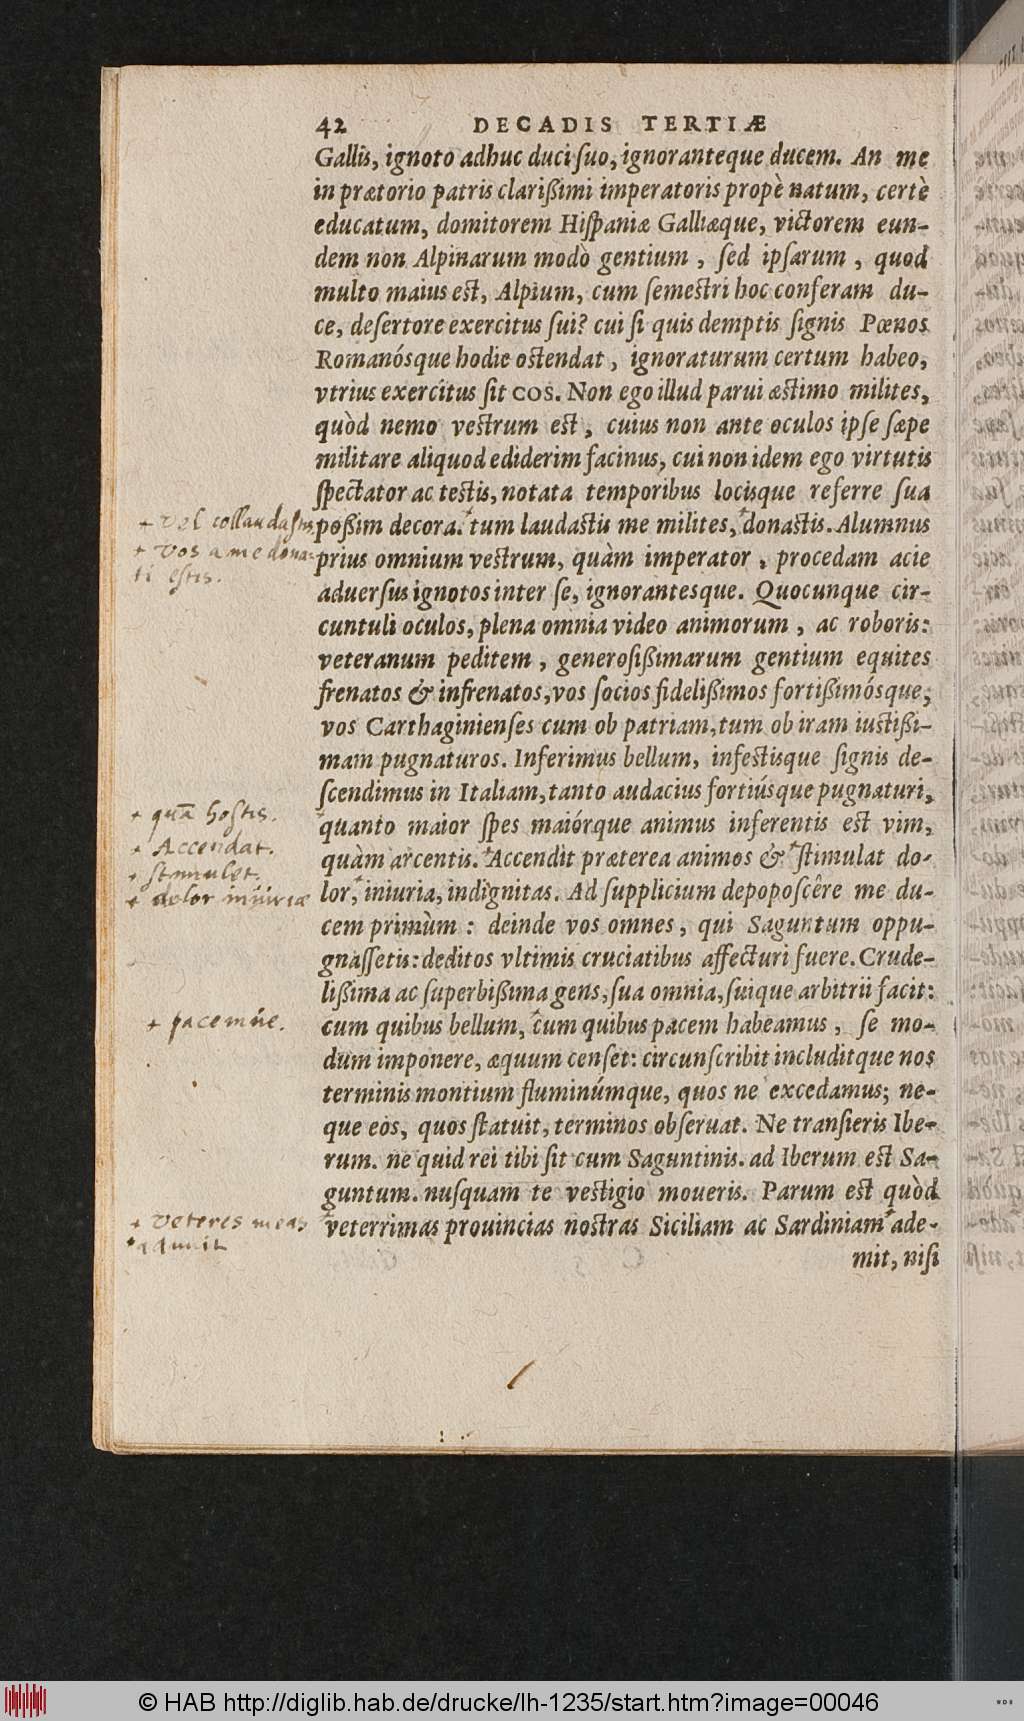 42 DECADIS TERTIÆ
Gallis, ignoto adhuc duci suo, ignoranteque ducem. An me
in prætorio patris clarißimi imperatoris propè natum, certè
educatum, domitorem Hiſpaniæ Galliæque, victorem eun-
dem non Alpinarum modò gentium, ſed ipſarum, quod
multo maius eſt, Alpium, cum ſemeſtri hoc conferam du-
ce, deſertore exercitus ſui? cui ſi quis demptis ſignis Pœnos
Romanósque hodie oſtendat, ignoraturum certum habeo,
vtrius exercitus ſit COS. Non ego illud parui æſtimo milites,
quòd nemo veſtrum eſt, cuius non ante oculos ipſe ſæpe
militare aliquod ediderim facinus, cui non idem ego virtutis
ſpectator ac teſtis, notata temporibus locisque referre ſua
poßim decora. tum laudaſtis me milites, donaſtis. Alumnus
prius omnium veſtrum, quàm imperator, procedam acie
aduerſus ignotos inter ſe, ignorantesque. Quocunque cir-
cuntuli oculos, plena omnia video animorum, ac roboris:
veteranum peditem, generoſißimarum gentium equites
frenatos & infrenatos, vos ſocios fidelißimos fortißimósque,
vos Carthaginienſes cum ob patriam, tum ob iram iuſtißi-
mam pugnaturos. Inferimus bellum, infeſtisque ſignis de-
ſcendimus in Italiam, tanto audacius fortiúsque pugnaturi,
quanto maior ſpes maiórque animus inferentis eſt vim,
quàm arcentis. Accendit præterea animos & ſtimulat do-
lor, iniuria, indignitas. Ad ſupplicium depopoſcêre me du-
cem primùm: deinde vos omnes, qui Saguntum oppu-
gnaſſetis: deditos vltimis cruciatibus affecturi fuere. Crude-
lißima ac ſuperbißima gens, ſua omnia, ſuique arbitrii facit:
cum quibus bellum, cum quibus pacem habeamus, ſe mo-
dum imponere, æquum cenſet: circunſcribit includitque nos
terminis montium fluminúmque, quos ne excedamus; ne-
que eos, quos ſtatuit, terminos obſeruat. Ne tranſieris Ibe-
rum. ne quid rei tibi ſit cum Saguntinis. ad Iberum eſt Sa-
guntum. nuſquam te veſtigio moueris. Parum eſt quòd
veterrimas prouincias noſtras Siciliam ac Sardiniam ade-
mit, niſi
+ vel collaudaſtis
+ vos a me dona-
ti eſtis.
+ quā hoſtis.
+ Accendat.
+ ſtimulet.
+ dolor iniuriæ
+ pacemue.
+ veteres meas
adimit
© HAB http://diglib.hab.de/drucke/lh-1235/start.htm?image=00046